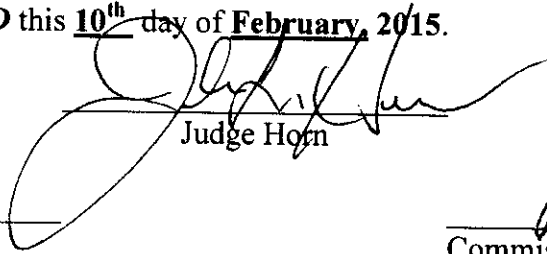 D this 10th day of February, 2015.
Judge Horn
Commis